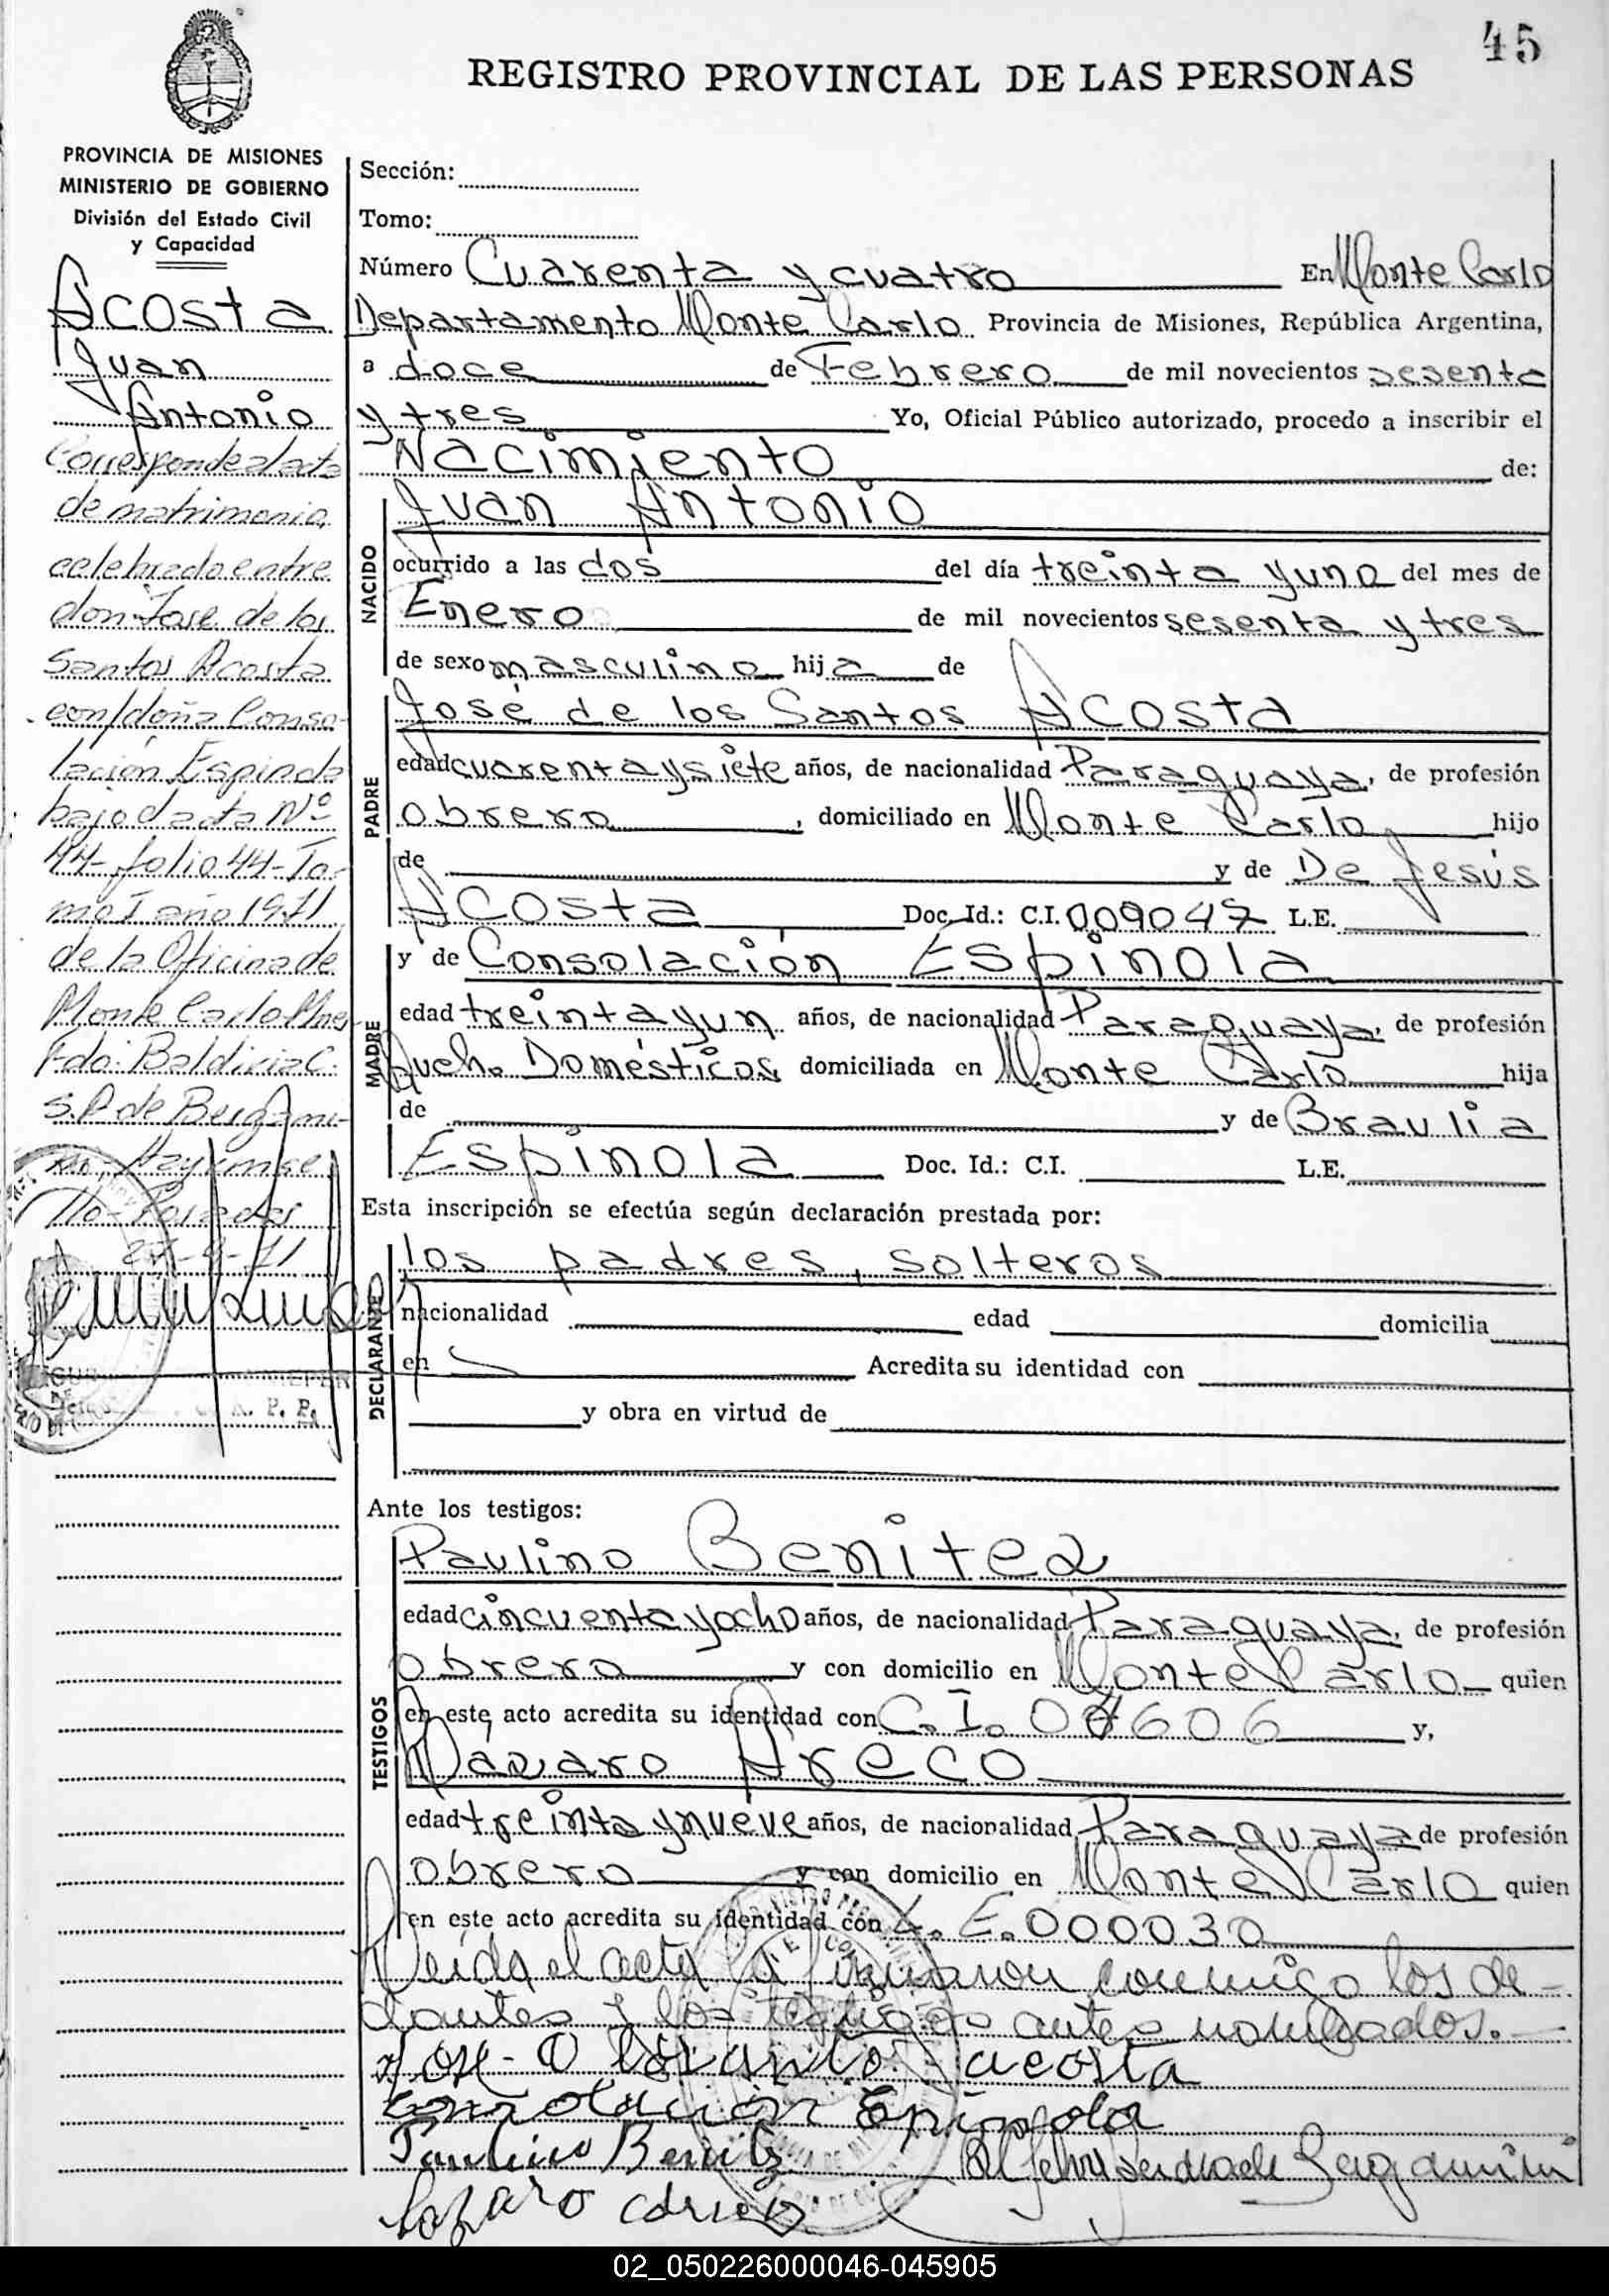 45
REGISTRO PROVINCIAL DE LAS PERSONAS
PROVINCIA DE MISIONES
MINISTERIO DE GOBIERNO
División del Estado Civil
y Capacidad
Acosta
Juan
Antonio
Corresponde al acta
de matrimonio
celebrado entre
don Jose de los
Santos Acosta
con doña Conso-
lación Espinola
bajo el acta Nº
44-folio 44-To-
mo I año 1971
de la Oficina de
Monte Carlo Mnes
Fdo: Baldicia C.
S.P. de Bergami-
27-9-71
Sección:
Tomo:
Número Cuarenta y cuatro En Monte Carlo
Departamento Monte Carlo Provincia de Misiones, República Argentina,
a doce de Febrero de mil novecientos sesenta
y tres Yo, Oficial Público autorizado, procedo a inscribir el
Nacimiento de:
NACIDO
Juan Antonio
ocurrido a las dos del día treinta y uno del mes de
Enero de mil novecientos sesenta y tres
de sexo masculino hija de
PADRE
José de los Santos Acosta
edad cuarenta y siete años, de nacionalidad Paraguaya, de profesión
obrero, domiciliado en Monte Carlo hijo
de y de De Jesús
Acosta Doc. Id.: C.I. 009047 L.E.
MADRE
y de Consolación Espinola
edad treinta y un años, de nacionalidad Paraguaya, de profesión
Queh. Domésticos, domiciliada en Monte Carlo hija
de y de Braulia
Espinola Doc. Id.: C.I. L.E.
Esta inscripción se efectúa según declaración prestada por:
DECLARANTE
los padres, solteros
nacionalidad edad domicilia
en Acredita su identidad con
y obra en virtud de
Ante los testigos:
TESTIGOS
Paulino Benitez
edad cincuenta y ocho años, de nacionalidad Paraguaya, de profesión
obrero y con domicilio en Monte Carlo quien
en este acto acredita su identidad con C.I. 07606 y,
Lázaro Areco
edad treinta y nueve años, de nacionalidad Paraguaya de profesión
obrero y con domicilio en Monte Carlo quien
en este acto acredita su identidad con L.E. 000030
Leída el acta la firmaron conmigo los de-
clantes y los testigos antes nombrados.-
acosta
Consolación Epinola
Paulino Benitz
Lazaro
02_050226000046-045905